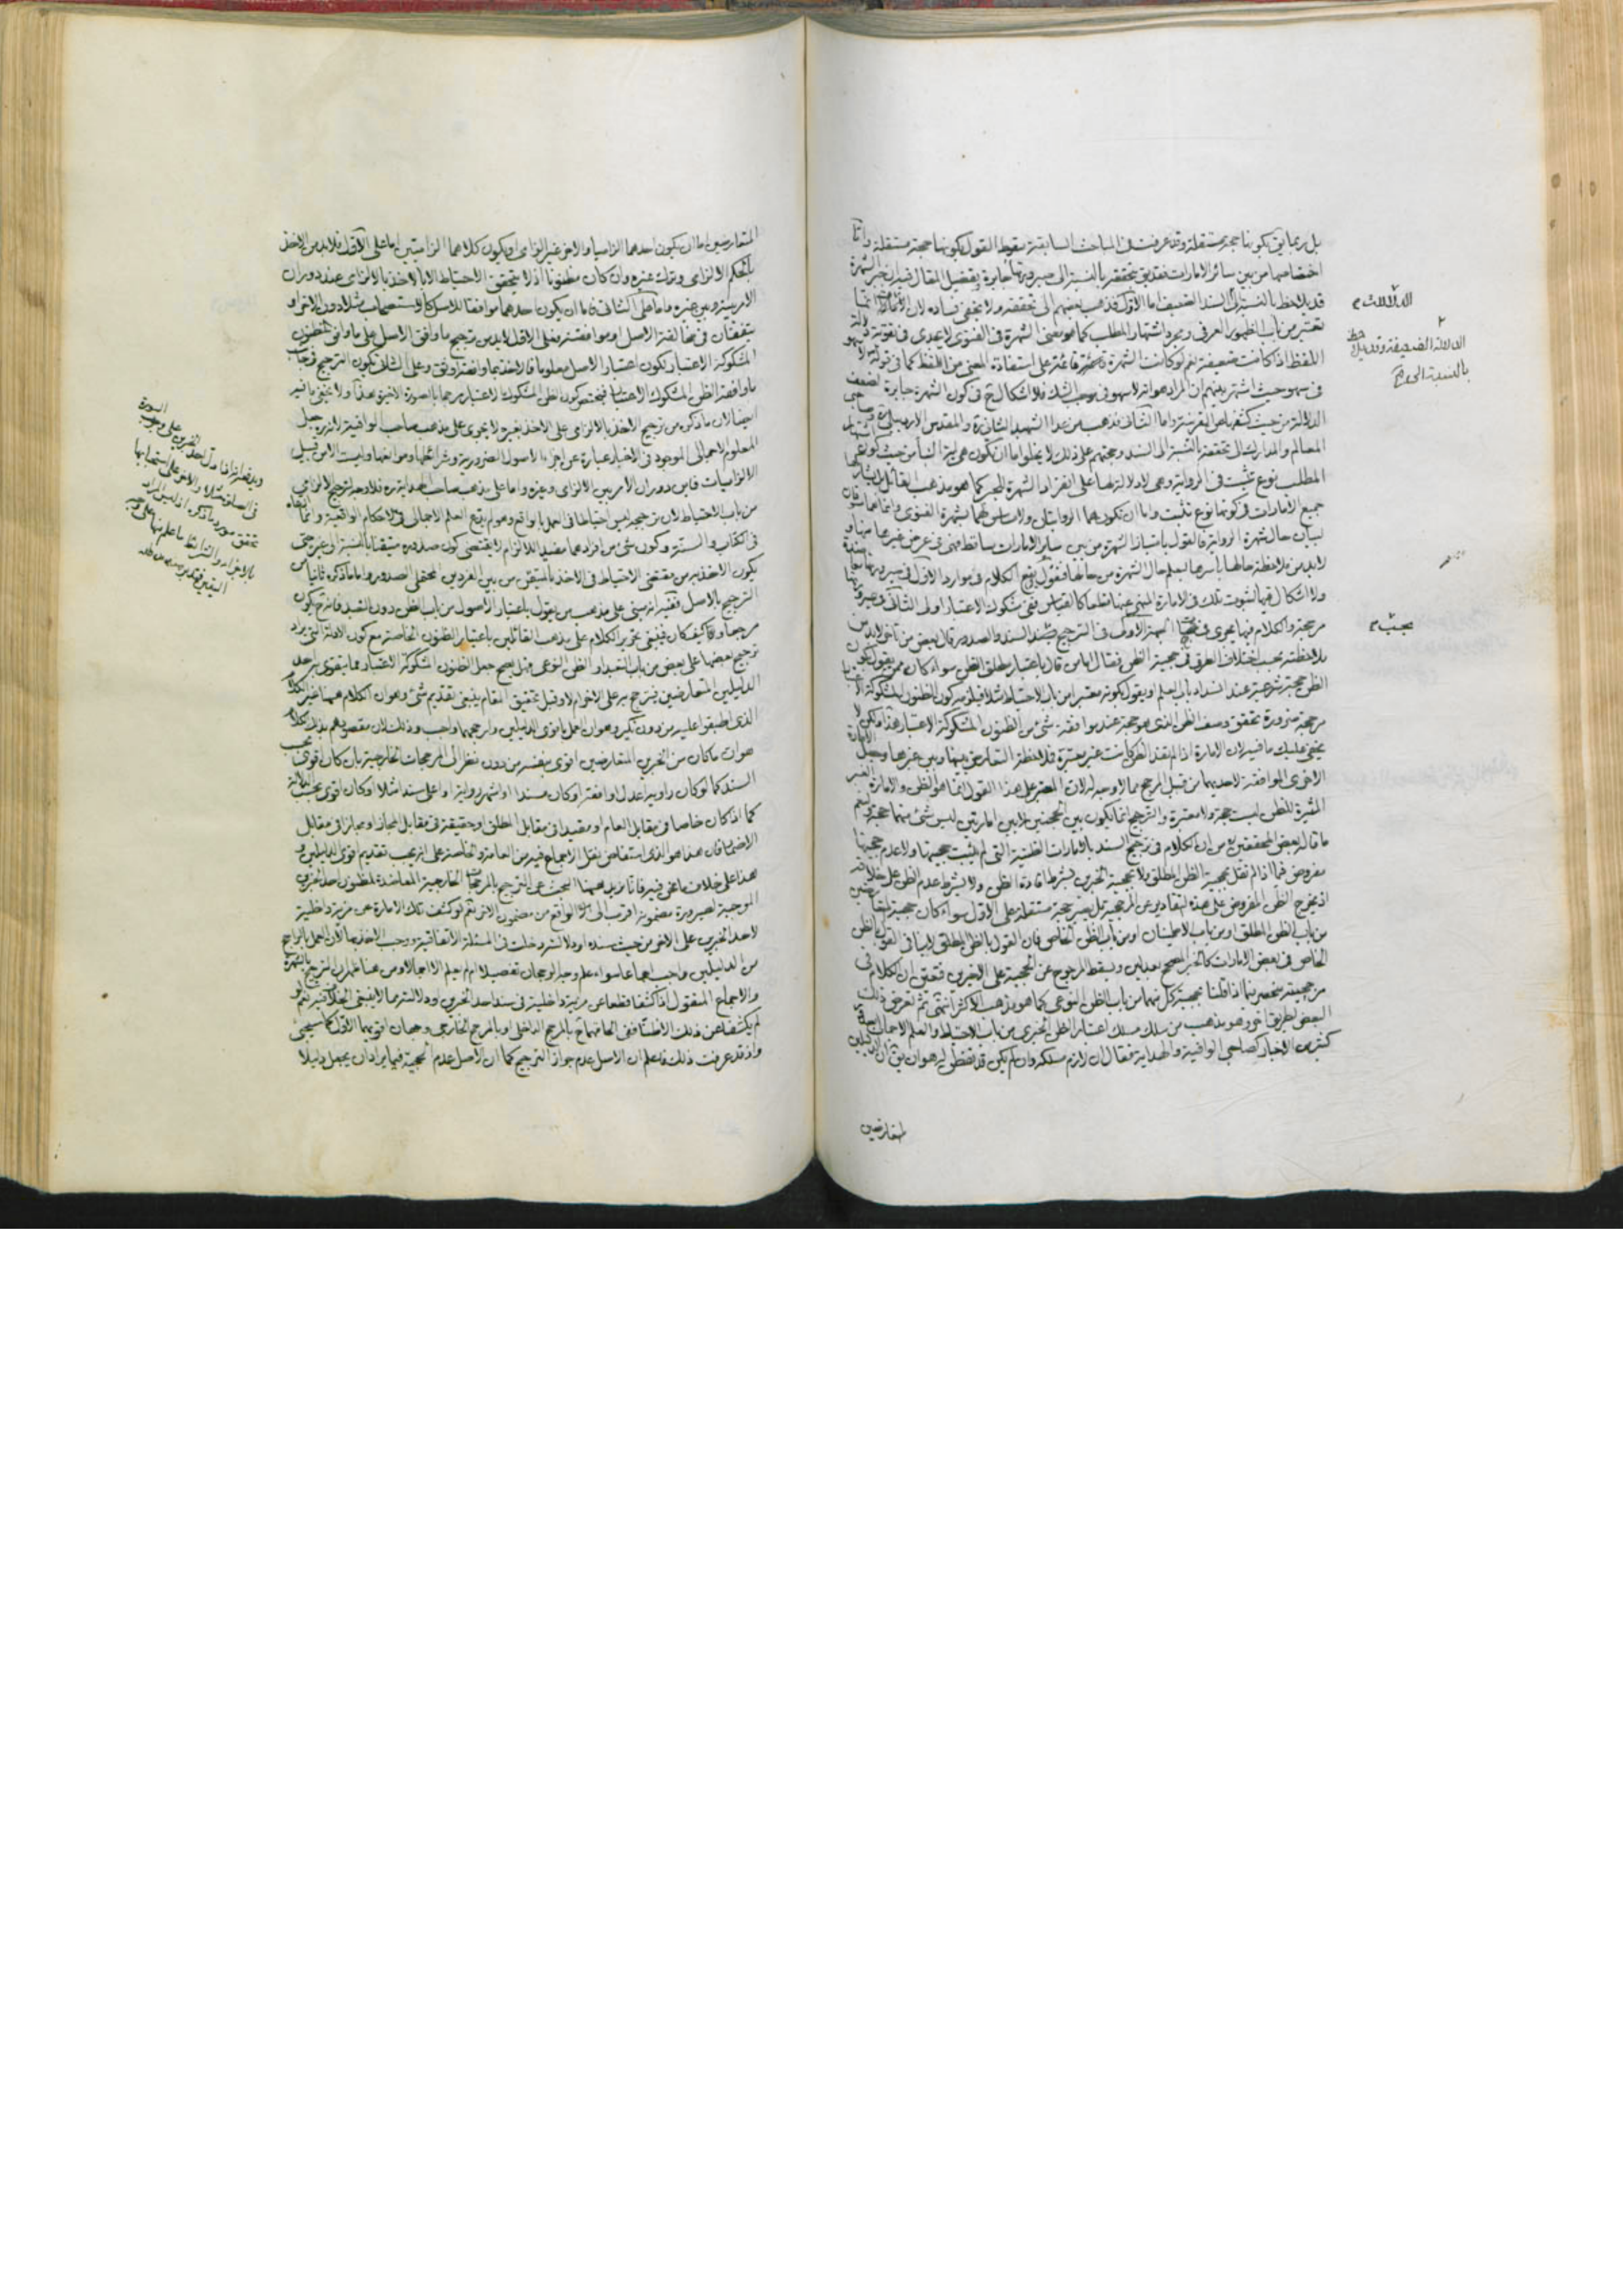 بل ربما يق بكونها حجة مستقلة وقد عرفت فى المباحث السابقة سقوط القول بكونها حجة مستقلة واما
اختصاصها من بين سائر الامارات فقد يق بتحققه بالنسبة الى صيرورتها جابرة وتفصيل المقال فيه ان جبر الشهرة
قد يلاحظ بالنسبة الى السند الضعيف اما الاول فذهب بعضهم الى تحققه ولا يخفى فساده لان الدلالة انما
تعتبر من باب الظهور العرفى ومجرد اشتهار المطلب كما هو معنى الشهرة فى الفتوى لا يجدى فى تقوية دلالة
اللفظ اذا كانت ضعيفة نعم لو كانت الشهرة قائمة على استفادة المعنى من اللفظ كما فى قوله لا سهو
فى سهو حيث اشتهر بينهم ان المراد هو انه لا سهو فى موجب الشك فلا اشكال ح فى كون الشهرة جابرة لضعف
الدلالة من حيث كشفها عن القرينة واما الثانى فذهب من عدا الشهيد الثانى ره والمقدس الاردبيلى ره وصاحبى
المعالم والمدارك الى تحققه بالنسبة الى السند وحجتهم على ذلك لا يخلو اما ان تكون هى اية النبأ من حيث كون اشتهار
المطلب نوع تثبت فى الرواية وهى لا دلالة لها على انفراد الشهرة بالجبر كما هو مذهب القائل
جميع الامارات فى كونها نوع تثبت واما ان تكون هما الروايتان ولا مساس لهما بشهرة الفتوى وانما هما مسوقان
لبيان حال شهرة الرواية فالقول بامتياز الشهرة من بين سائر الامارات ساقط
لابد من ملاحظة حالها باسرها ليعلم حال الشهرة من حالها فنقول يقع الكلام فى موارد الاول فى صيرورتها
ولا اشكال فيها لثبوت تلك فى الامارة المنهى عنها قطعا كالقياس ففى مشكوك الاعتبار اولى الثانى فى صيرورتها
مرجحة والكلام فيها يجرى فى الجهة الاولى فى الترجيح بحسب السند والصدور قال بعض من تاخر لابد من
ملاحظته بحسب اختلاف الطرق فى حجية الظن فقال اما من قال باعتبار مطلق الظن سواء كان ممن يقول بكون
الظن حجة شرعية عند انسداد باب العلم او يقول بكونه معتبرا من باب الاحتياط مثلا فيلزمه كون الظنون المشكوكة الاعتبار
مرجحة ضرورة تحقق وصف الظن الذى هو حجة عند موافقة شئ من الظنون المشكوكة الاعتبار هذا ولكن لا
يخفى عليك ما فيه لان الامارة اذا لم تفد الظن كانت غير معتبرة فملاحظة التعارض بينها وبين غيرها وجعل الامارة
الاخرى الموافقة لاحديهما من قبيل المرجح مما لا وجه له لان المعتبر على هذا القول انما هو الظن والامارة الغير
المثيرة للظن ليست حجة ولا معتبرة والترجيح انما يكون بين الحجتين لا بين امارتين ليس شئ منهما حجة نعم
ما قاله بعض المحققين ره من ان الكلام فى ترجيح السند بالامارات الظنية التى لم يثبت حجيتها ولا عدم حجيتها
مفروض فيما اذا لم نقل بحجية الظن المطلق ولا بحجية الخبرين بشرط افادة الظن ولا بشرط عدم الظن على خلافه
اذ يخرج الظن المفروض على هذه التقادير عن المرجحية بل يصير حجة مستقلة على الاول سواء كان حجية المتعارضين
من باب الظن المطلق او من باب الاطمينان او من باب الظن الخاص فان القول بالظن المطلق لا ينافى القول بالظن
الخاص فى بعض الامارات كالخبر الصحيح بعدلين ويسقط المرجوح عن الحجية على الاخيرين فتعين ان الكلام فى
مرجحيته منحصر بما اذا قلنا بحجية كل منهما من باب الظن النوعى كما هو مذهب الاكثر انتهى ثم تعرض ذلك
البعض لطريق اخر وهو مذهب من سلك مسلك اعتبار الظن الخبرى من باب الاحتياط والعلم الاجمالى
كثير من الاخبار كصاحبى الوافية والهداية فقال ان لازم مسلكه وان لم يكن قد تفطن له هو ان يق ان الدليلين
المتعارضين
الدلالات م
الدلالة الضعيفة وقد يلاحظ
بالنسبة الى صح
بحسب م
المتعارضين اما ان يكون احدهما الزاميا والاخر غير الزامى او يكون كلاهما الزاميتين اما على الاول فلابد من الاخذ
بالحكم الالزامى وترك غيره وان كان مظنونا اذ لا يتحقق الاحتياط الا بالاخذ بالالزامى عند دوران
الامر بينه وبين غيره واما على الثانى فاما ان يكون احدهما موافقا للاصل كالاستصحاب مثلا دون الاخر او
يتفقان فى مخالفة الاصل وموافقته فعلى الاول لابد من ترجيح ما وافق الاصل على ما وافق الظنون
المشكوكة الاعتبار لكون اعتبار الاصل معلوما فالاخذ بما وافقه اوثق وعلى الثانى يكون الترجيح فى جانب
ما وافقه الظن المشكوك الاعتبار فيختص كون الظن المشكوك الاعتبار مرجحا بالصورة الاخيرة هذا ولا يخفى ما فيه
ايضا لان ما ذكره من ترجيح الاخذ بالالزامى على الاخذ بغيره لا يجرى على مذهب صاحب الوافية لانه ره جعل
المعلوم الاجمالى الموجود فى الاخبار عبارة عن اجزاء الاصول الضرورية وشرائطها وموانعها وليست الا من قبيل
الالزاميات فاين دوران الامر بين الالزامى وغيره واما على مذهب صاحب الهداية ره فلا وجه لترجيح الالزامى
من باب الاحتياط لان ترجيحه ليس احتياطا فى العمل بالواقع وهو لم يدع العلم الاجمالى فى الاحكام الواقعية وانما ادعاه
فى الكتاب والسنة وكون شئ من افرادهما مفيدا للالزام لا يقتضى كون صدوره متيقنا بالنسبة الى غيره حتى
يكون الاخذ به من مقتضى الاحتياط فى الاخذ بالمتيقن من بين الفردين المحتمل الصدور واما ما ذكره ثانيا من
الترجيح بالاصل ففيه انه مبنى على مذهب من يقول باعتبار الاصول من باب الظن دون التعبد فانه ح يكون
مرجحا وكيف كان فينبغى تحرير الكلام على مذهب القائلين باعتبار الظنون الخاصة مع كون الادلة التى يراد
ترجيح بعضها على بعض من باب التعبد او الظن النوعى فهل يصح جعل الظنون المشكوكة الاعتبار مما يتقوى به احد
الدليلين المتعارضين فيترجح به على الاخر ام لا وقبل تحقيق المقام ينبغى تقديم شئ وهو ان الكلام هيهنا غير الكلام
الذى اطبقوا عليه من دون نكير وهو ان العمل باقوى الدليلين وارجحهما واجب وذلك لان مقصودهم بذلك الكلام
هو ان ما كان من الخبرين المتعارضين اقوى بنفسه من دون نظر الى المرجحات الخارجية بان كان اقوى بحسب
السند كما لو كان راويه اعدل او افقه او كان مسندا او اشهر رواية او اعلى سندا مثلا او كان اقوى بحسب الدلالة
كما اذا كان خاصا فى مقابل العام او مقيدا فى مقابل المطلق او حقيقة فى مقابل المجاز او مجازا فى مقابل
الاضمار فان هذا هو الذى استفاض نقل الاجماع فيه من العامة والخاصة على انه يجب تقديم اقوى الدليلين و
هذا على خلاف ما نحن فيه فانا نريد هيهنا البحث عن الترجيح بالمرجحات الخارجية المعاضدة لمظنون احد الخبرين
الموجبة لصيرورة مضمونه اقرب الى الواقع من مضمون الاخر نعم لو كشفت تلك الامارة عن مزية داخلية
لاحد الخبرين على الاخر من حيث سنده او دلالته دخلت فى المسئلة الاتفاقية ووجب الاخذ بها لان العمل بالراجح
من الدليلين واجب اجماعا سواء علم وجه الرجحان تفصيلا ام لم يعلم الا اجمالا ومن هنا ظهر ان الترجيح بالشهرة
والاجماع المنقول اذا كشفا قطعا عن مزية داخلية فى سند احد الخبرين او دلالته مما لا ينبغى الخلاف فيه نعم لو
لم يكشفا عن ذلك الا ظنا ففى الحاقهما ح بالمرجح الداخلى او بالمرجح الخارجى وجهان اقويهما الاول كما سيجئ
واذ قد عرفت ذلك فاعلم ان الاصل عدم جواز الترجيح كما ان الاصل عدم الحجية فيما يراد ان يجعل دليلا
فى الصلوة مثلا والاخر على استحبابها
تحقق مورد ما ذكره اذ ليس المراد
بالاجزاء والشرائط ما علم منها على وجه
اليقين فتدبر منه مد ظله